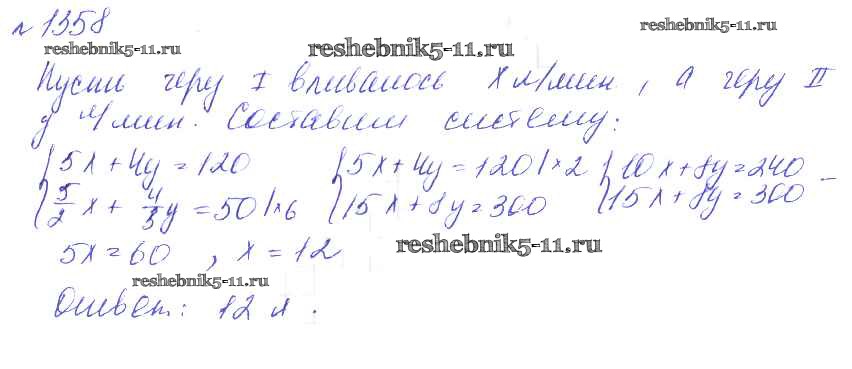 № 1358
reshebnik5-11.ru reshebnik5-11.ru reshebnik5-11.ru
Пусть через I вливалось x л/мин, а через II
y л/мин. Составим систему:
{5x + 4y = 120 {5x + 4y = 120 | ×2 {10x + 8y = 240
{5/2 x + 4/3 y = 50 | ×6 {15x + 8y = 300 {15x + 8y = 300 –
5x = 60, x = 12 reshebnik5-11.ru
reshebnik5-11.ru
Ответ: 12 л.